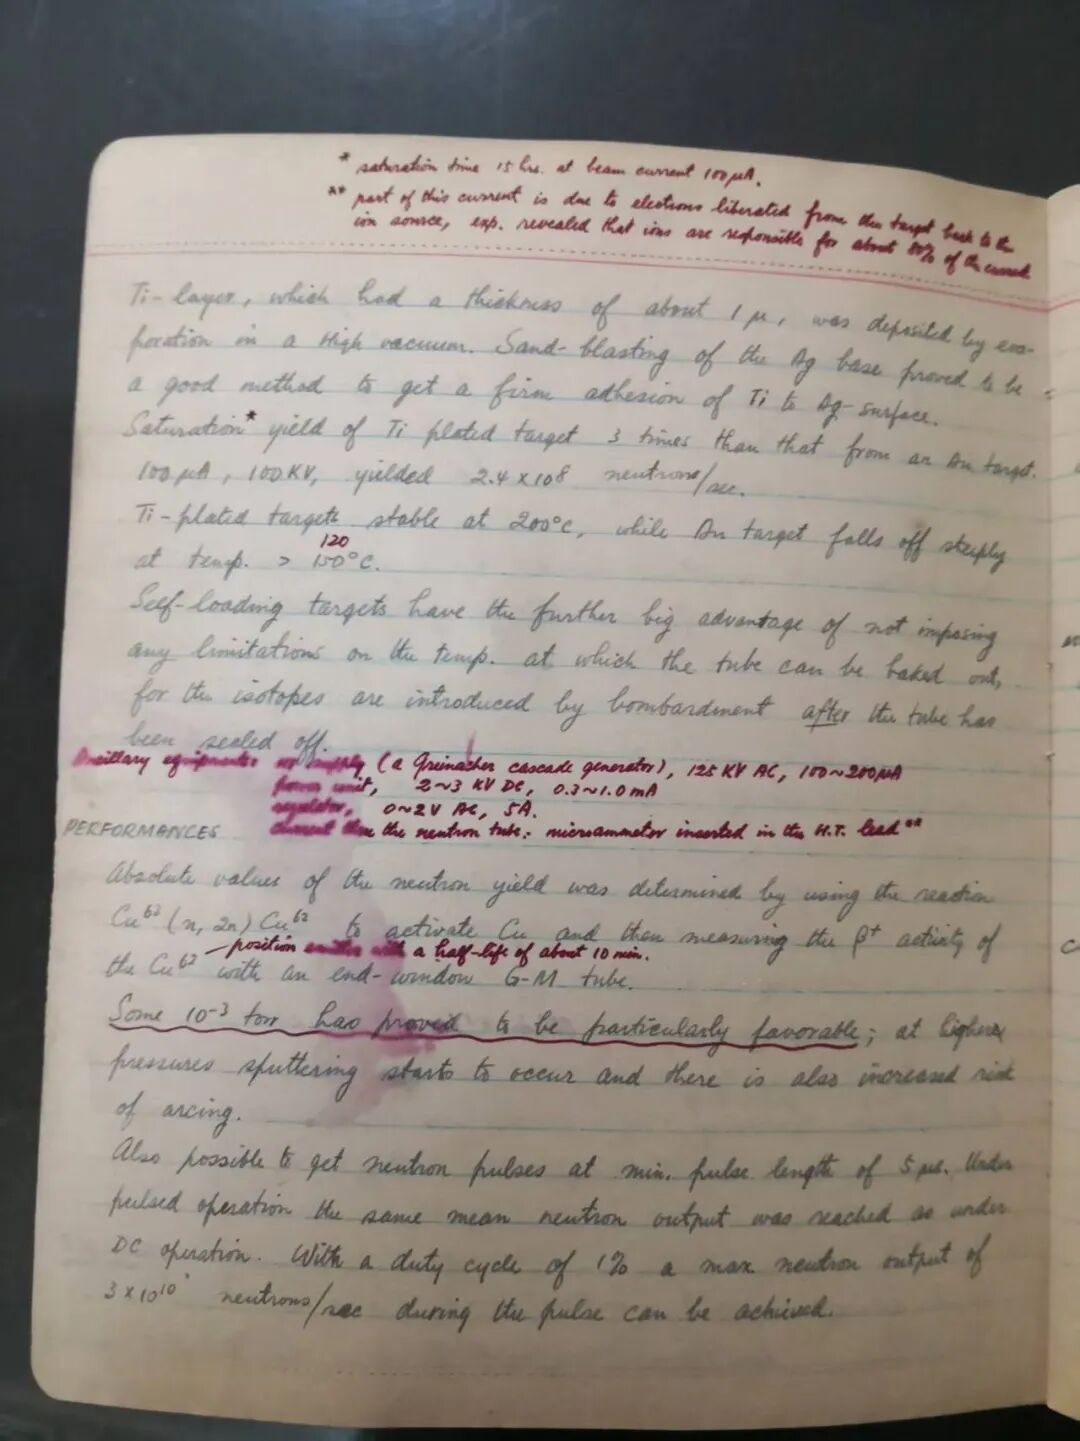 * saturation time 15 hrs. at beam current 100 μA.
** part of this current is due to electrons liberated from the target back to the
ion source, exp. revealed that ions are responsible for about 80% of the current
Ti-layer, which had a thickness of about 1 μ, was deposited by eva-
poration in a high vacuum. Sand-blasting of the Ag base proved to be
a good method to get a firm adhesion of Ti to Ag-surface.
Saturation* yield of Ti plated target 3 times than that from an Au target.
100 μA, 100 KV, yielded 2.4 × 10⁸ neutrons/sec.
Ti-plated targets stable at 200°C, while Au target falls off steeply
120
at temp. > 150°C.
Self-loading targets have the further big advantage of not imposing
any limitations on the temp. at which the tube can be baked out,
for the isotopes are introduced by bombardment after the tube has
been sealed off.
Ancillary equipments supply (a Greinacher cascade generator), 125 KV AC, 100~200 μA
power unit, 2~3 KV DC, 0.3~1.0 mA
regulator, 0~2 V AC, 5A.
PERFORMANCES current thru the neutron tube: microammeter inserted in the H.T. lead**
Absolute values of the neutron yield was determined by using the reaction
Cu⁶³ (n, 2n) Cu⁶² to activate Cu and then measuring the β⁺ activity of
position emitter with a half-life of about 10 min.
the Cu⁶² with an end-window G-M tube.
Some 10⁻³ torr has proved to be particularly favorable; at higher
pressures sputtering starts to occur and there is also increased risk
of arcing.
Also possible to get neutron pulses at min. pulse length of 5 μs. Under
pulsed operation the same mean neutron output was reached as under
DC operation. With a duty cycle of 1% a max neutron output of
3 × 10¹⁰ neutrons/sec during the pulse can be achieved.